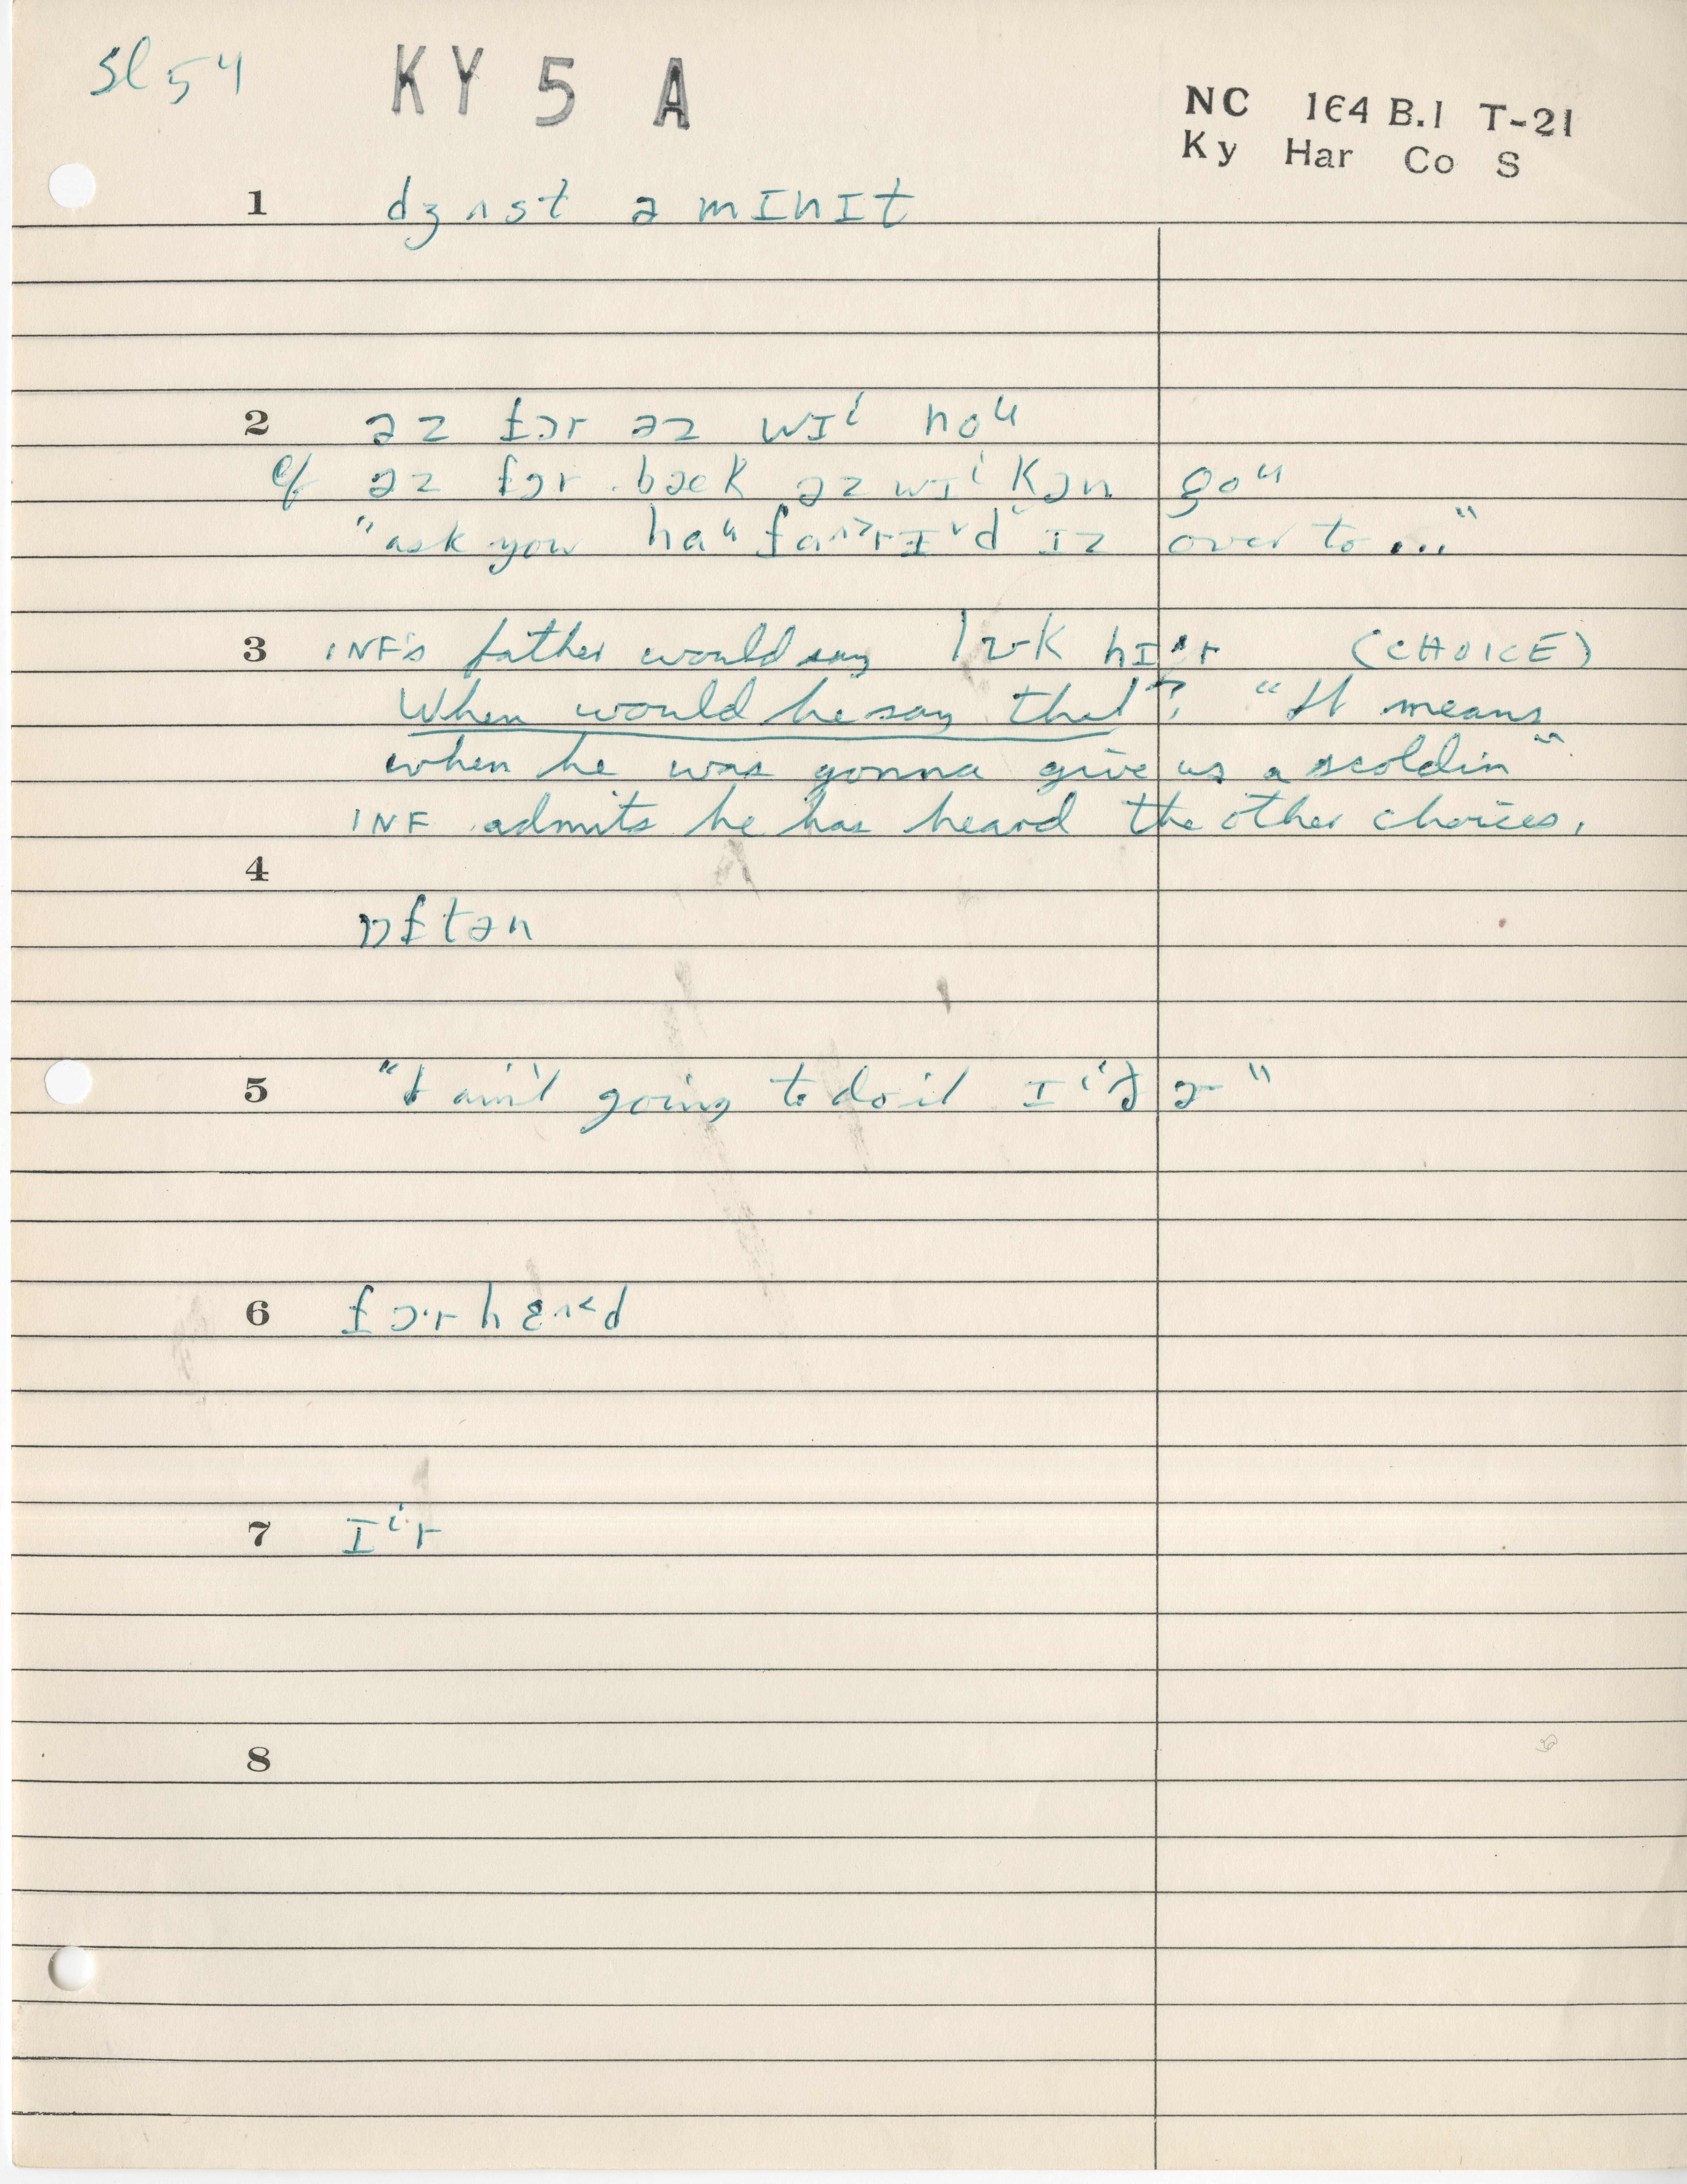 Sl 54 KY 5 A
NC 164 B.1 T-21
Ky Har Co S
1 dʒʌst ə mɪnɪt
2 əz fɔr əz wɪⁱ noᵘ
cf əz fɔr bæk əz wɪⁱ kən goᵘ
"ask you haᵘ fɑr ɪz over to..."
3 INF's father would say lʊk hɪər (CHOICE)
When would he say that? "It means
when he was gonna give us a scoldin"
INF admits he has heard the other choices.
4
ɒftən
5 "I ain't going to do it ɪⁱðɚ"
6 fɔrhɛd
7 ɪⁱr
8